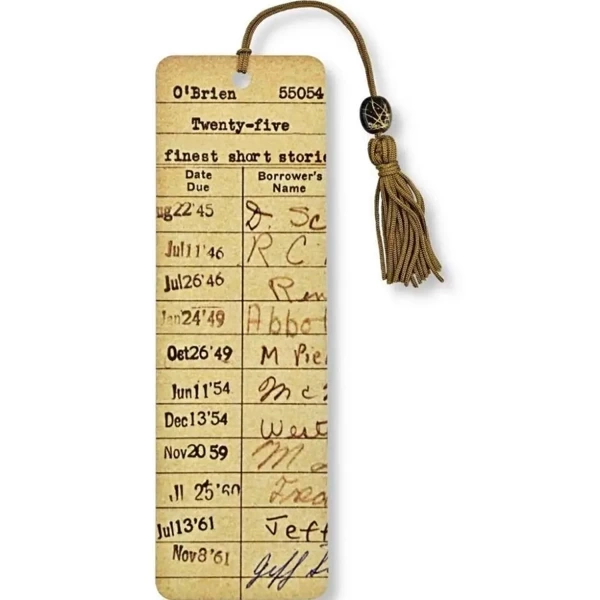 O'Brien 55054
Twenty-five
finest short storie
Date Due Borrower's Name
ug 22'45 D. Sc
Jul 11'46 R C
Jul 26'46 Ren
Jan 24'49 Abbot
Oct 26'49 M Pie
Jun 11'54 Mc
Dec 13'54 West
Nov 20 59 M
25'60
Jul 13'61 Jeff
Nov 8'61 Jeff S